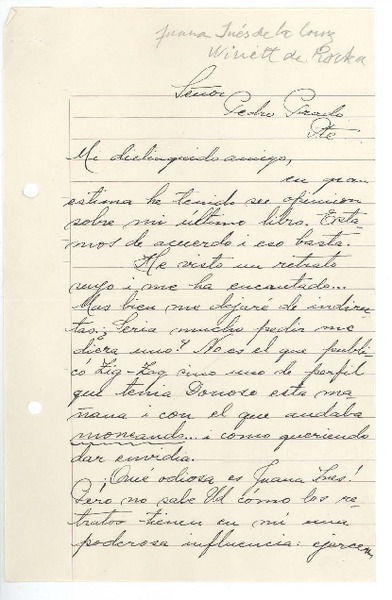 Juana Inés de la Cruz
Winétt de Rokha
Señor
Pedro Prado
Pte
Mi distinguido amigo,
en gran
estima he tenido su opinión
sobre mi último libro. Esta-
mos de acuerdo i eso basta.
He visto un retrato
suyo i me ha encantado...
Mas bien me dejaré de indirec-
tas: ¿Seria mucho pedir me
diera uno? No es el que publi-
có Zig-Zag sino uno de perfil
que tenia Donoso esta ma-
ñana i con el que andaba
moneando... i como queriendo
dar envidia.
¡Qué odiosa es Juana Ines!
Pero no sabe Ud cómo los re-
tratos tienen en mi una
poderosa influencia: ejercen